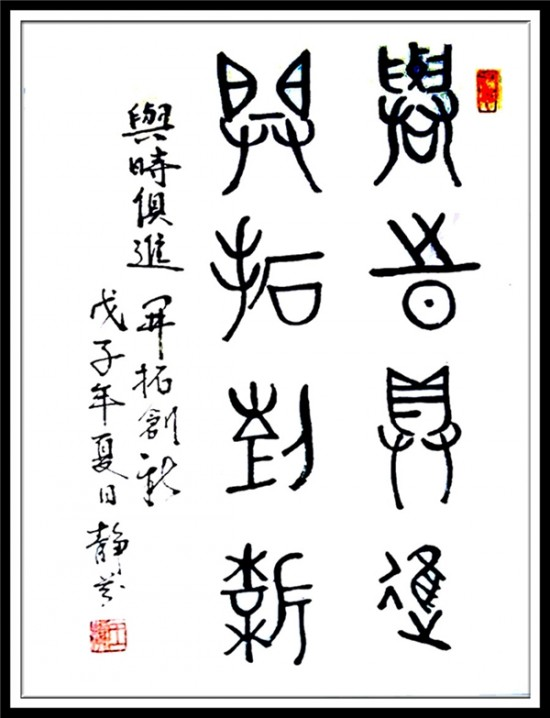 與時俱進
開拓創新
與時俱進 開拓創新
戊子年夏日 靜